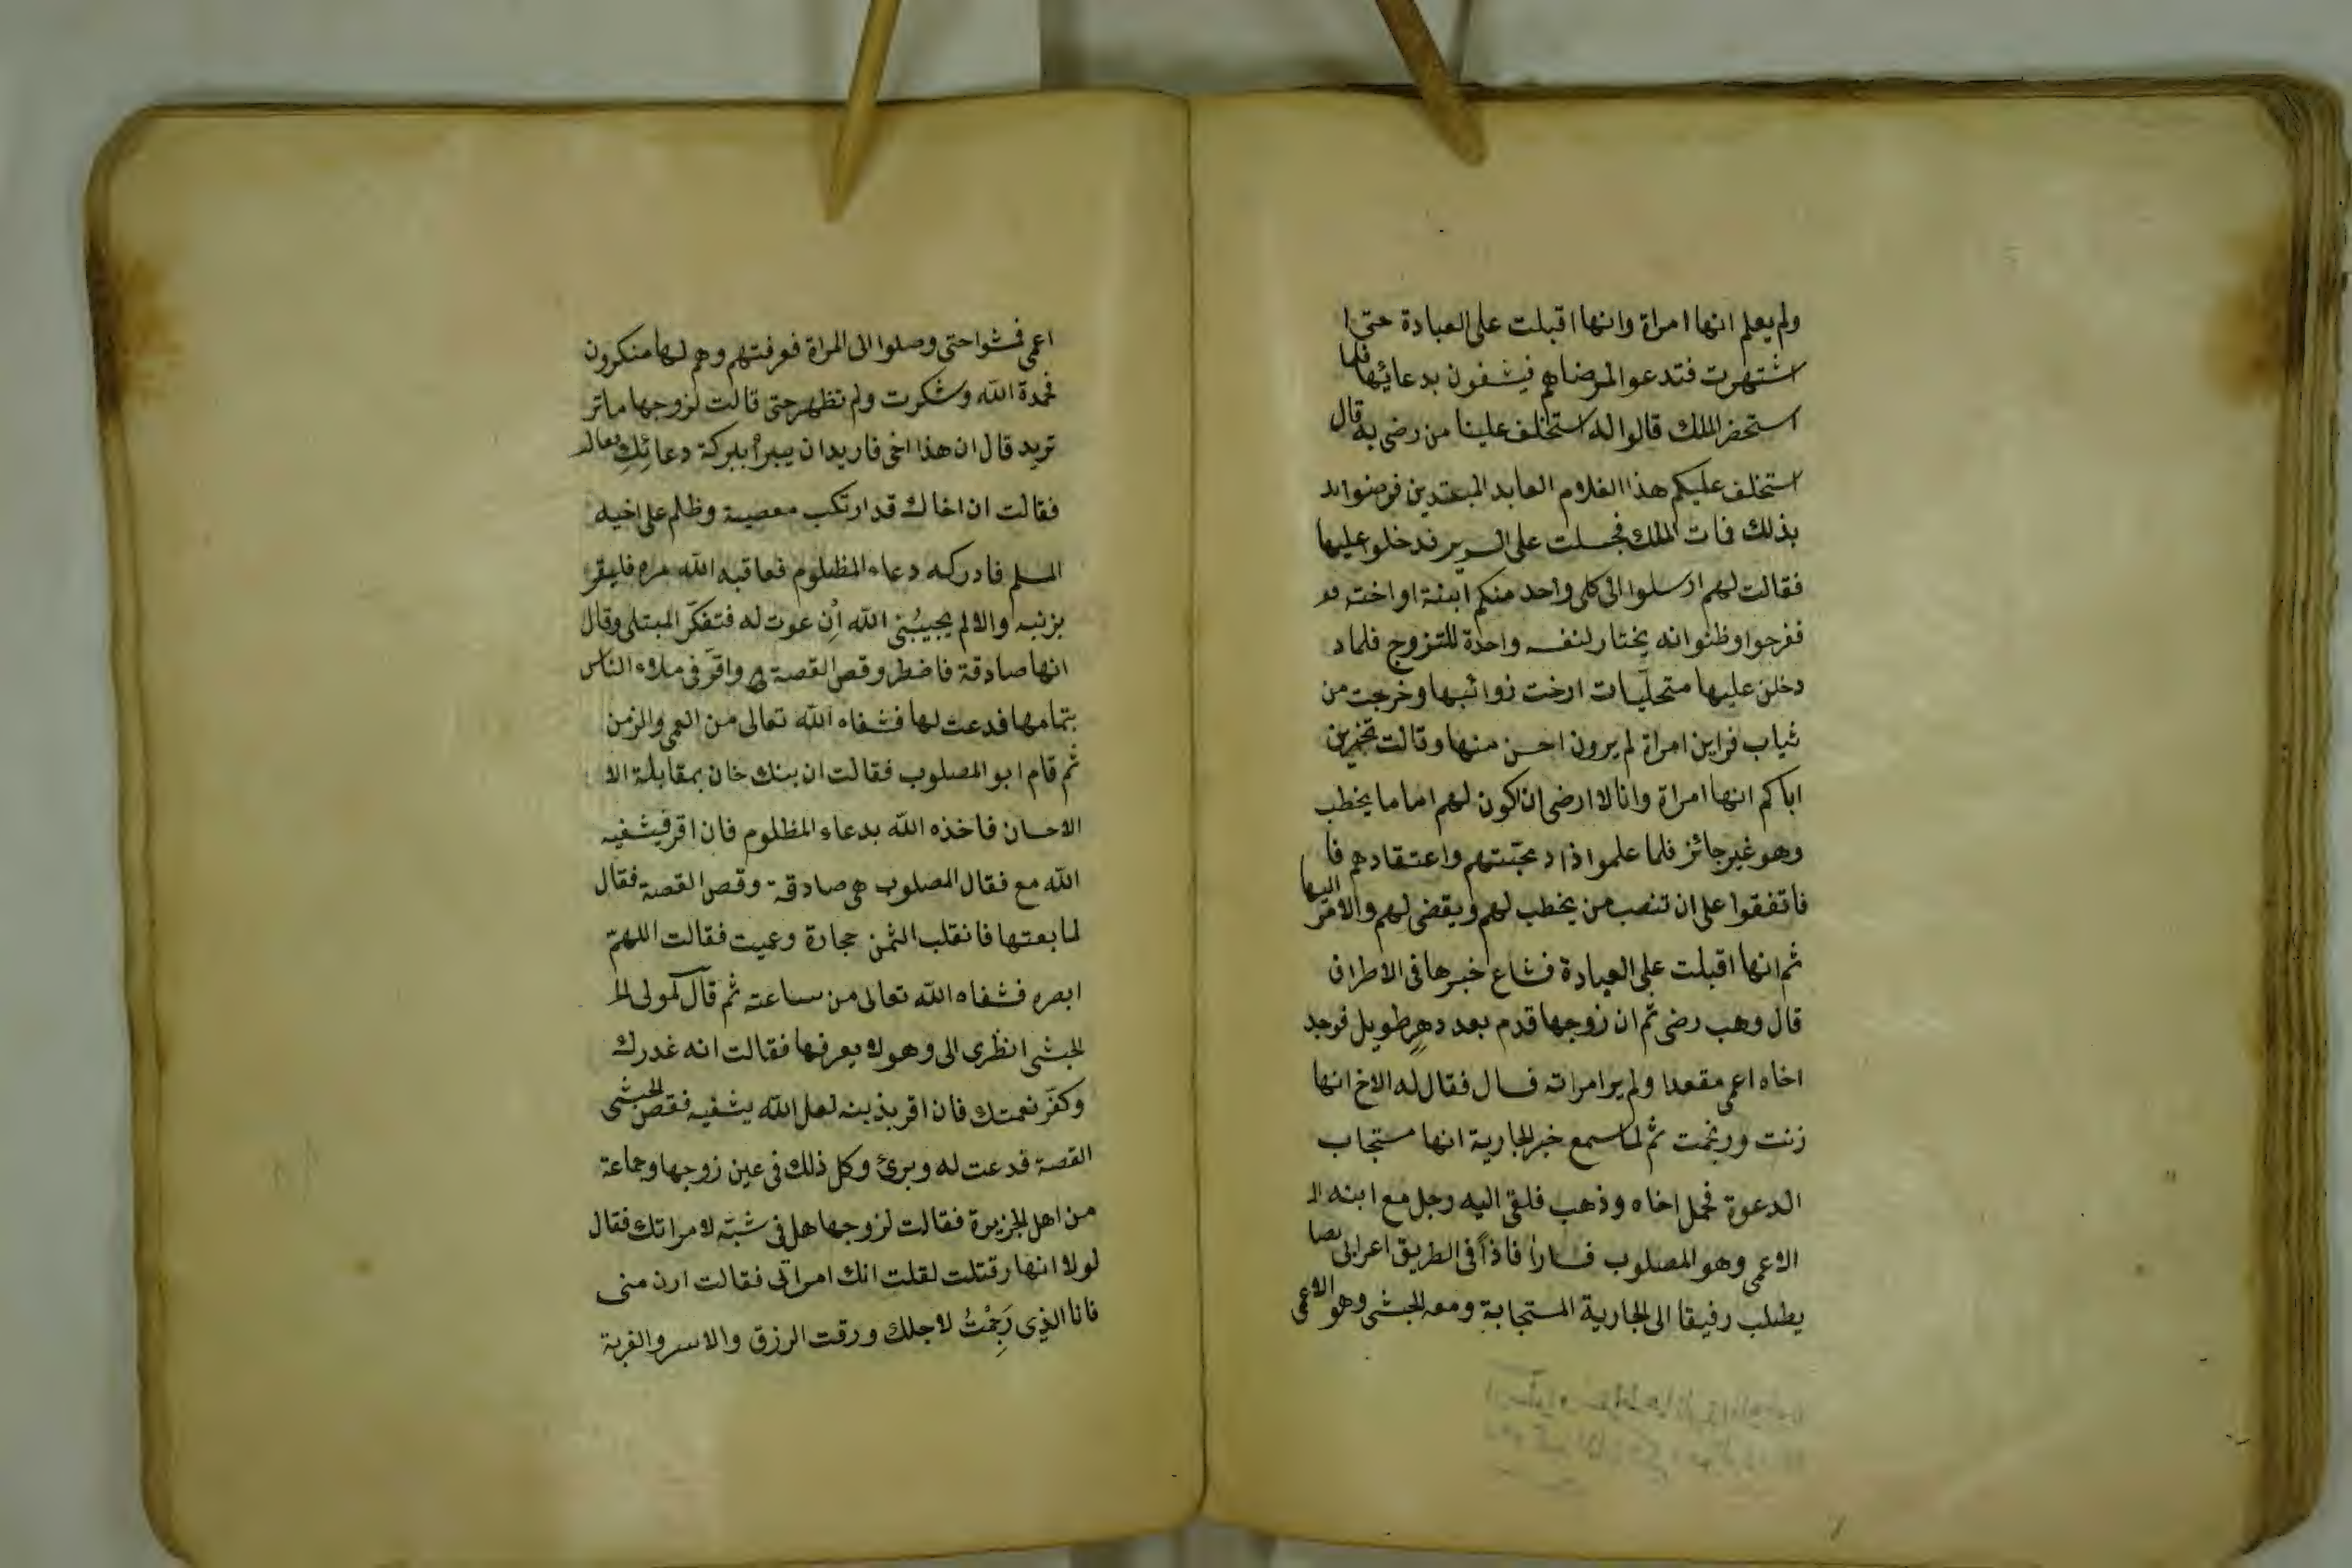 ولم يعلم انها امراة وانها اقبلت على العبادة حتى ا
اشتهرت فتدعوا لمرضاهم فيشفون بدعائها فلما
استحضر الملك قالوا له استخلف علينا من رضى به قال
استخلف عليكم هذا الغلام العابد المبتدين فرضوا
بذلك فات الملك فجلست على السرير فدخلوا عليها
فقالت لهم ارسلوا الى كل واحد منكم ابنة او اخته
ففرحوا وظنوا انه يختار لنفسه واحدة للتزوج فلما د
دخلن عليها متحليات ارخت زوائبها وخرجت من
ثياب فراين امراة لم يرون احسن منها وقالت تخبرن
اباكم انها امراة وانا لا ارضى ان اكون لهم اماما يخطب
وهو غير جائز فلما علموا اذاد محبتهم واعتقادهم فا
فاتفقوا على ان تنصب من يخطب لهم ويقضى لهم والامر اليها
ثم انها اقبلت على العبادة فشاع خبرها فى الاطراف
قال وهب رضى ثم ان زوجها قدم بعد دهر طويل فوجد
اخاه اعمى مقعدا ولم ير امراته فسال فقال له الاخ انها
زنت ورجمت ثم لما سمع خبر الجارية انها مستجاب
الدعوة فحمل اخاه وذهب فلقى اليه رجل مع ابنه الا
الاعمى وهو المصلوب فسارا فاذا فى الطريق اعرابى بصا
يطلب رفيقا الى الجارية المستجابة ومعه الحبشى وهو الاعمى
اعمى فمشوا حتى وصلوا الى المراة فعرفتهم وهم لها منكرون
فحمدة الله وشكرت ولم تظهر حتى قالت لزوجها ماتر
تريد قال ان هذا اخى فاريد ان يبرأ ببركة دعائك
فقالت ان اخاك قد ارتكب معصية وظلم على اخيه
المسلم فادركه دعاء المظلوم فعاقبه الله مره فليقر
بزنبه والا لم يجيبنى الله ان عوت له فتفكر المبتلى وقال
انها صادقة فاضطر وقص القصة واقر فى ملاء الناس
بتمامها فدعت لها فشفاه الله تعالى من العمى والزمن
ثم قام ابو المصلوب فقالت ان بنك خان بمقابلة الا
الاحسان فاخذه الله بدعاء المظلوم فان اقر فيشفيه
الله مع فقال المصلوب هى صادقة وقص القصة فقال
لما بعتها فانقلب الثمن حجارة وعميت فقالت اللهم
ابصره فشفاه الله تعالى من ساعته ثم قال كمولى
الحبشى انظرى الى وهو لا يعرفها فقالت انه غدرك
وكفر نعمتك فان اقر بذنبه لعل الله يشفيه فقص الحبشى
القصة فدعت له وبرئ وكل ذلك فى عين زوجها وجماعة
من اهل الجزيرة فقالت لزوجها هل فى شبّه لامراتك فقال
لولا انها رقتلت لقلت انك امراتى فقالت ادن منى
فانا الذى رَجِمْتُ لاجلك ورقت الرزق والاسر والغربة